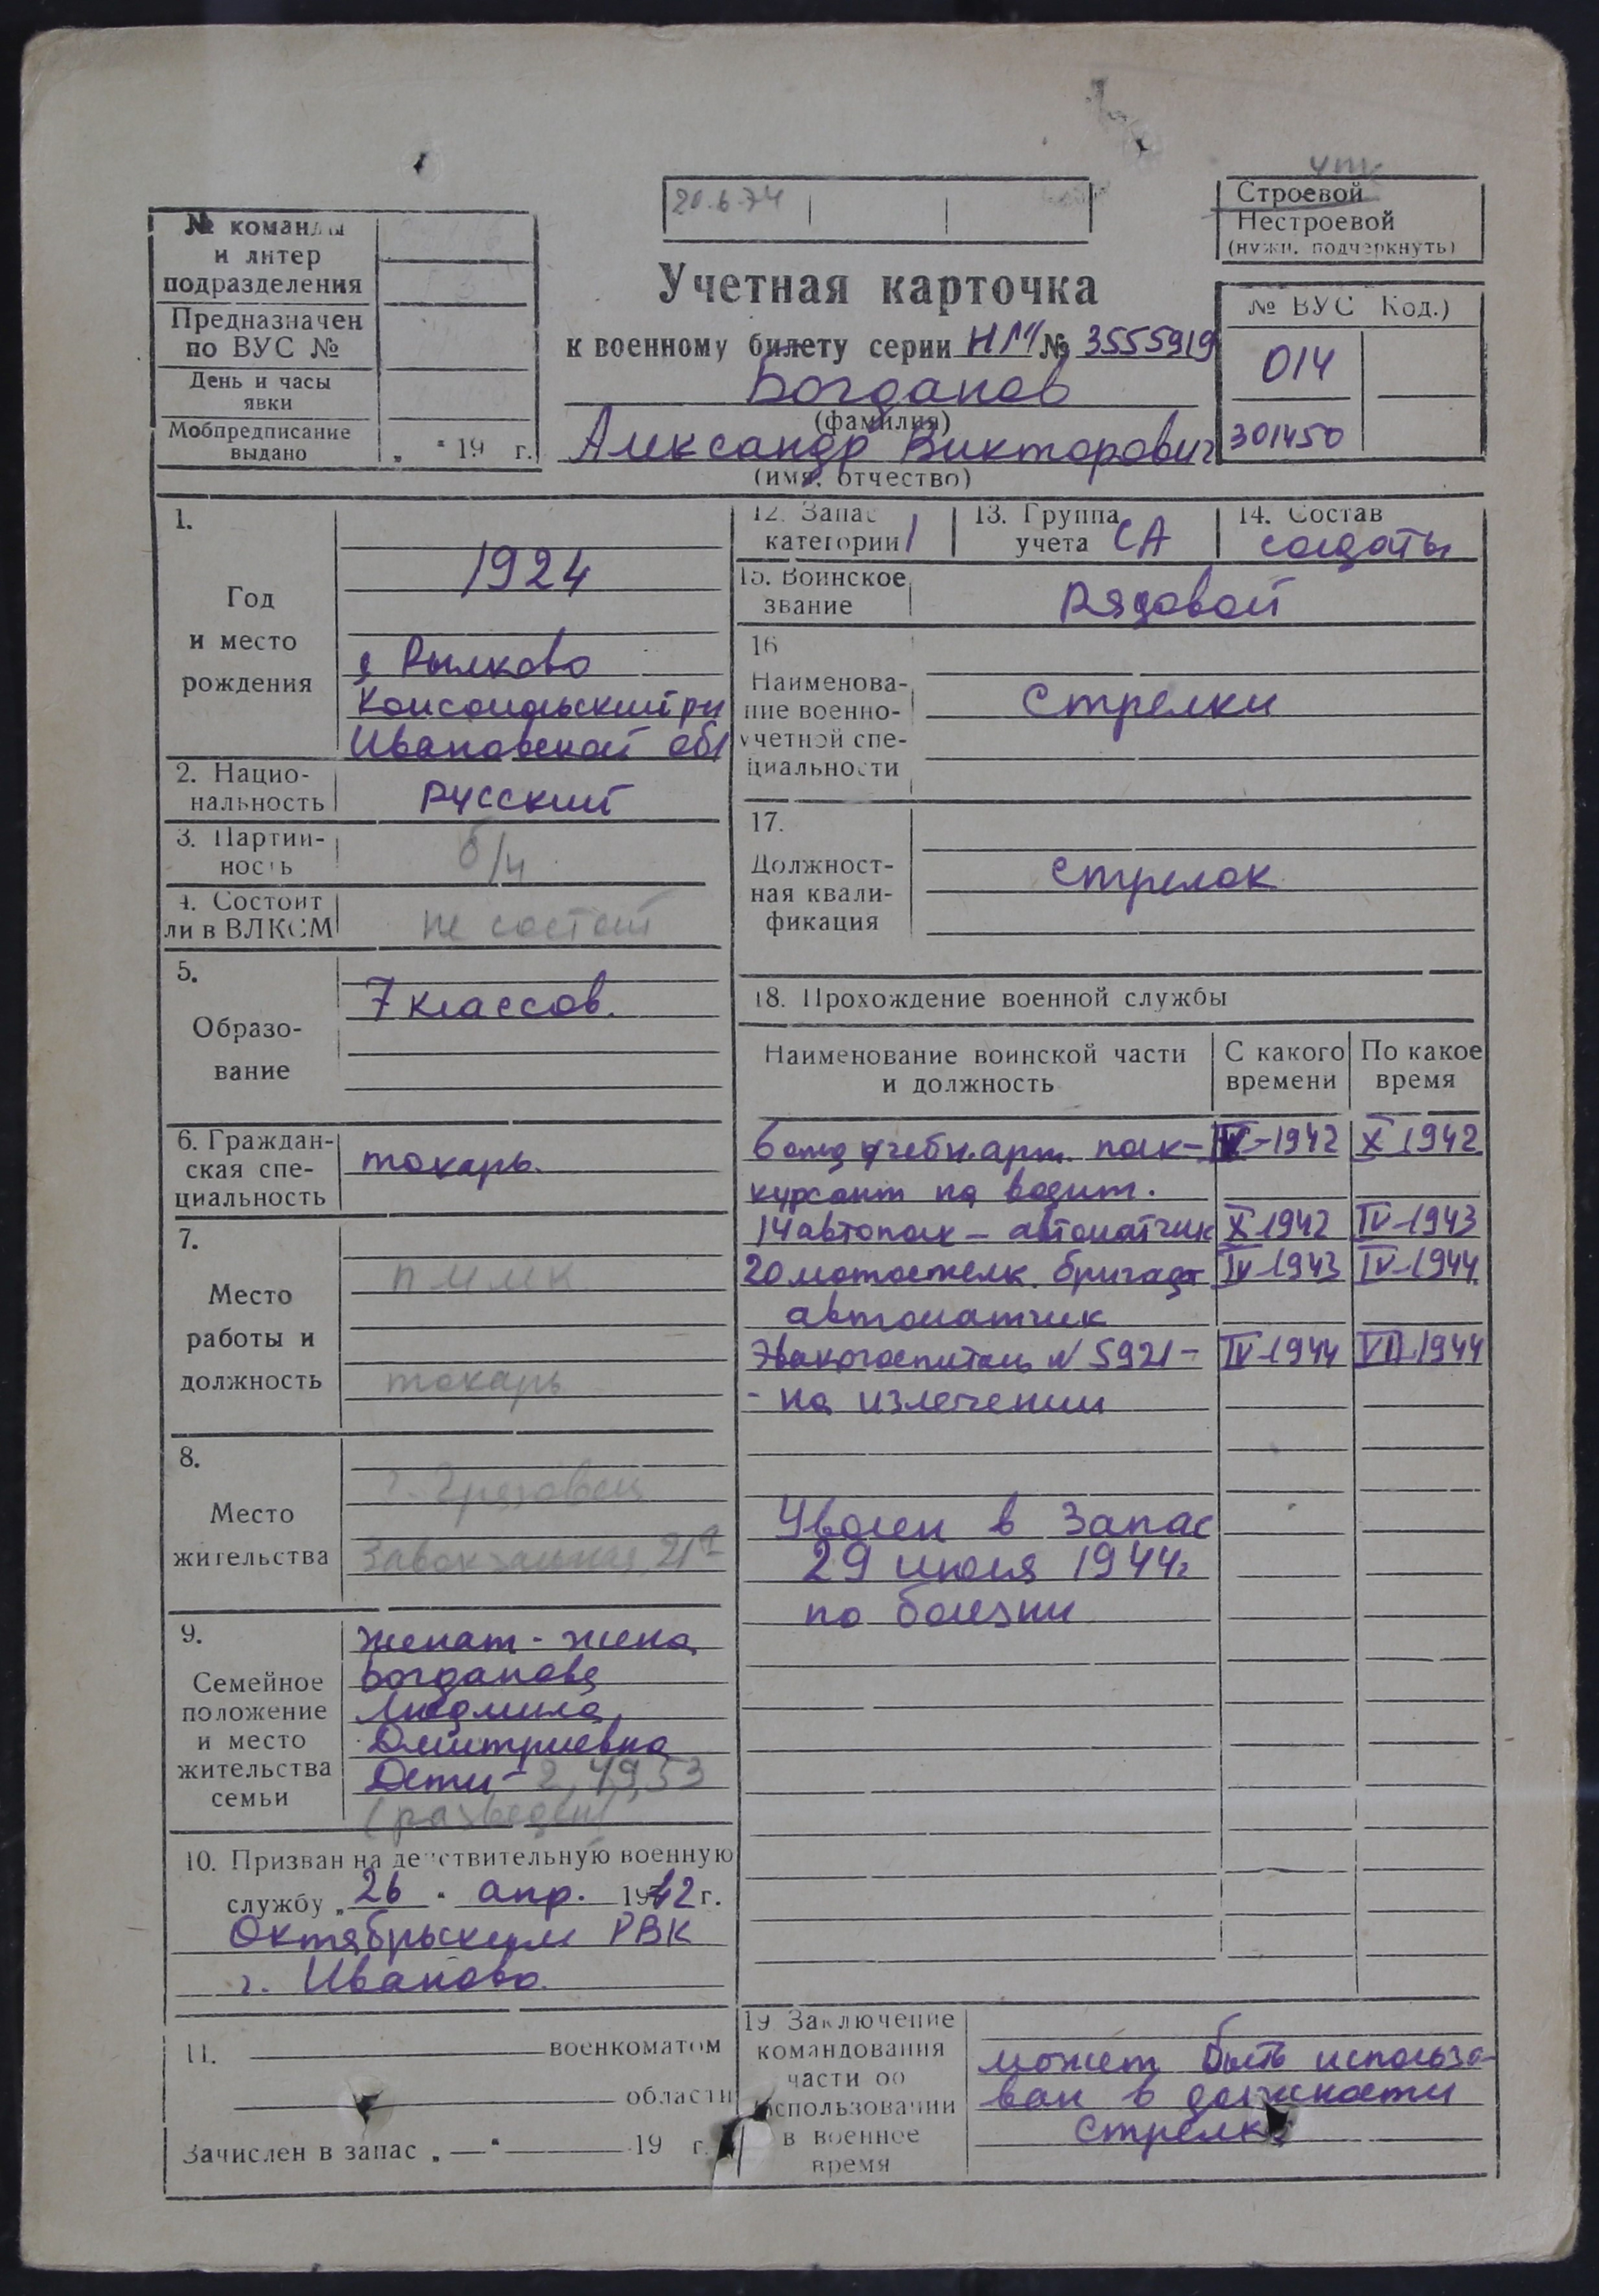 20.6.74
Строевой
Нестроевой
(нужн. подчеркнуть)
№ команды
и литер
подразделения
Предназначен
по ВУС №
День и часы
явки
Мобпредписание
выдано „ " 19 г.
Учетная карточка
к военному билету серии НМ № 3555919
Богданов
(фамилия)
Александр Викторович
(имя, отчество)
№ ВУС Код.)
014
301450
1.
Год
и место
рождения
1924
д Рылково
Комсомольский рн
Ивановской обл
2. Нацио-
нальность
русский
3. Партий-
ность
б/п
4. Состоит
ли в ВЛКСМ
не состоит
5.
Образо-
вание
7 классов.
6. Граждан-
ская спе-
циальность
токарь.
7.
Место
работы и
должность
ПММК
токарь
8.
Место
жительства
г. Грязовец
Завокзальная, 21
9.
Семейное
положение
и место
жительства
семьи
женат - жена
Богданова
Людмила
Дмитриевна
Дети - 2, 49, 53
(разведен)
10. Призван на действительную военную
службу „ 26 " апр. 1942 г.
Октябрьским РВК
г. Иваново.
11. военкоматом
области
Зачислен в запас „ — " 19 г.
12. Запас
категории 1
13. Группа
учета СА
14. Состав
солдаты
15. Воинское
звание
Рядовой
16
Наименова-
ние военно-
учетной спе-
циальности
Стрелки
17.
Должност-
ная квали-
фикация
стрелок
18. Прохождение военной службы
Наименование воинской части
и должность
С какого
времени
По какое
время
6 отд учебн. арт. полк - IV-1942 X 1942
курсант на водит.
14 автополк - автоматчик X 1942 IV-1943
20 мотострелк. бригада IV-1943 IV-1944
автоматчик
Эвакогоспиталь N 5921 - IV-1944 VII-1944
- на излечении
Уволен в запас
29 июля 1944г
по болезни
19 Заключение
командования
части об
использовании
в военное
время
может быть использо-
ван в должности
стрелка